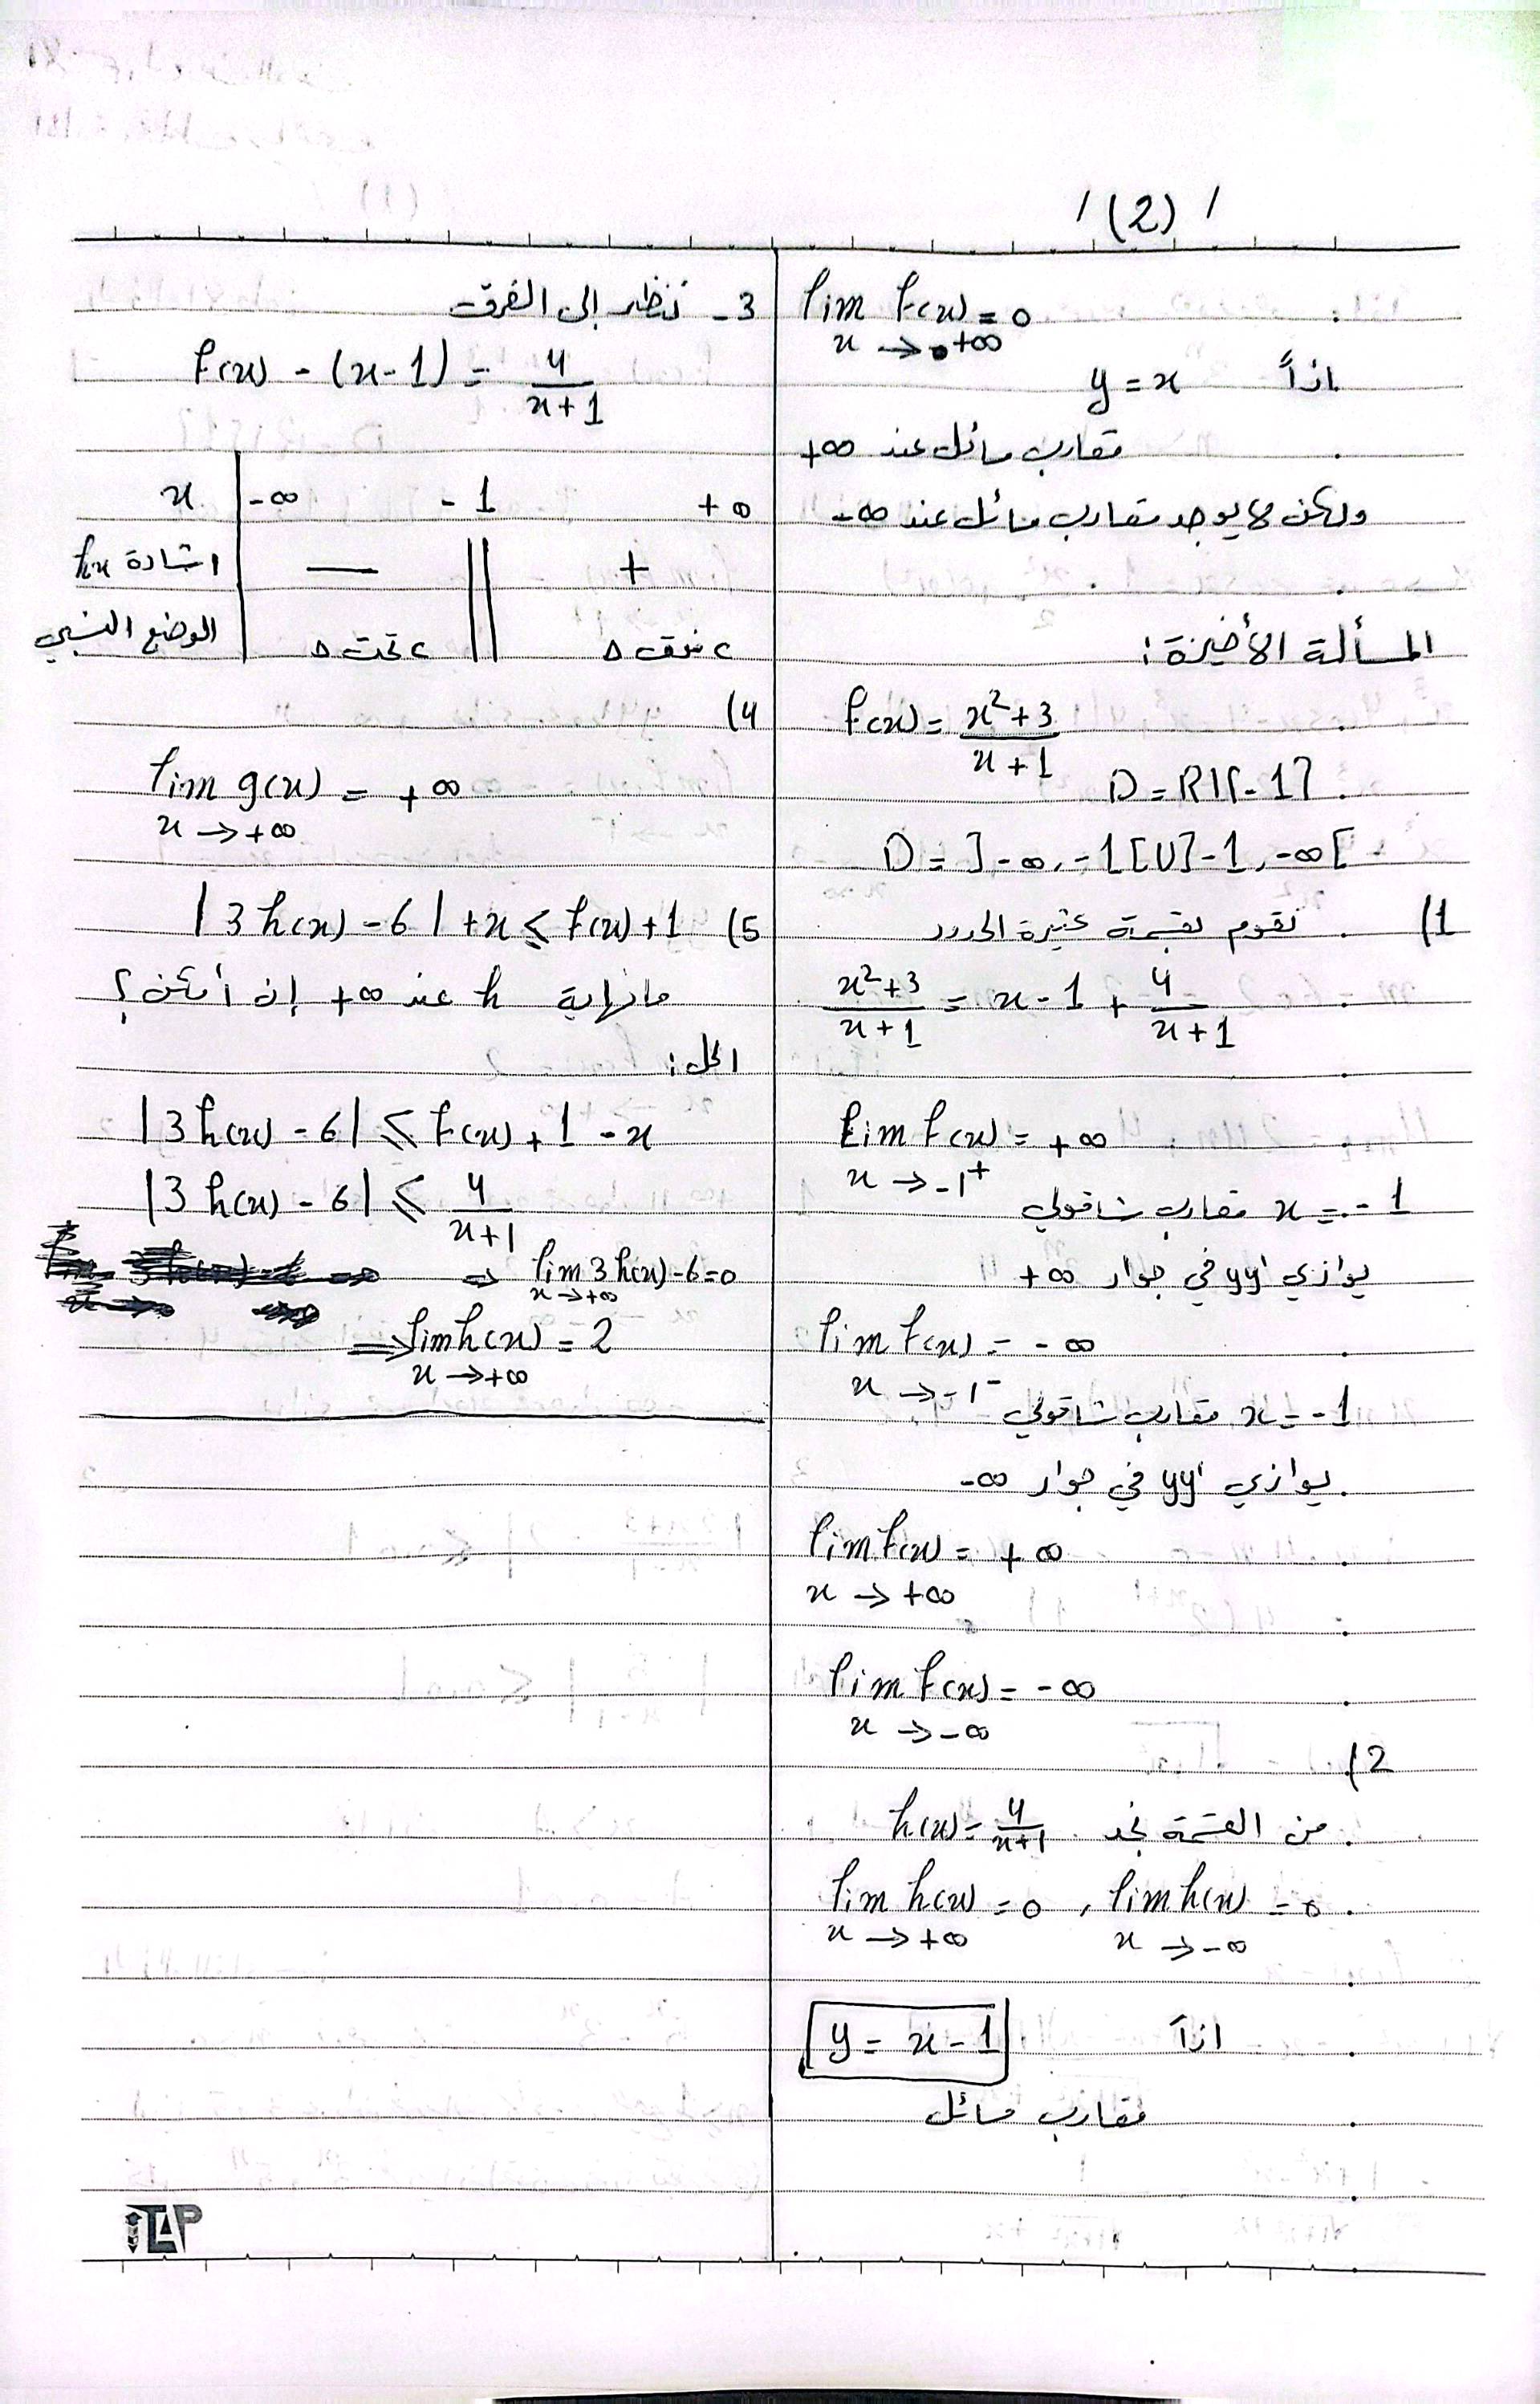 (2)
lim f(x) = 0
x → +∞
إذاً y = x
مقارب مائل عند +∞
ولكن لا يوجد مقارب مائل عند -∞
المسألة الأخيرة:
f(x) = x²+3 / x+1
D = R\{-1}
D = ]-∞, -1[ U ]-1, -∞[
1) نقوم بقسمة كثيرة الحدود
x²+3 / x+1 = x - 1 + 4 / x+1
lim f(x) = +∞
x → -1⁺
x = -1 مقارب شاقولي
يوازي yy' في جوار +∞
lim f(x) = -∞
x → -1⁻
x = -1 مقارب شاقولي
يوازي yy' في جوار -∞
lim f(x) = +∞
x → +∞
lim f(x) = -∞
x → -∞
2)
من القسمة نجد h(x) = 4 / x+1
lim h(x) = 0 , lim h(x) = 0
x → +∞ x → -∞
إذاً y = x - 1
مقارب مائل
3- ننظر إلى الفرق
f(x) - (x-1) = 4 / x+1
x -∞ -1 +∞
اشارة hx - || +
الوضع النسبي c تحت Δ || c فوق Δ
4)
lim g(x) = +∞
x → +∞
5) |3h(x) - 6| + x ≤ f(x) + 1
ما نهاية h عند +∞ إن أمكن؟
الحل:
|3h(x) - 6| ≤ f(x) + 1 - x
|3h(x) - 6| ≤ 4 / x+1
⇒ lim 3h(x) - 6 = 0
x → +∞
⇒ lim h(x) = 2
x → +∞
iTAP